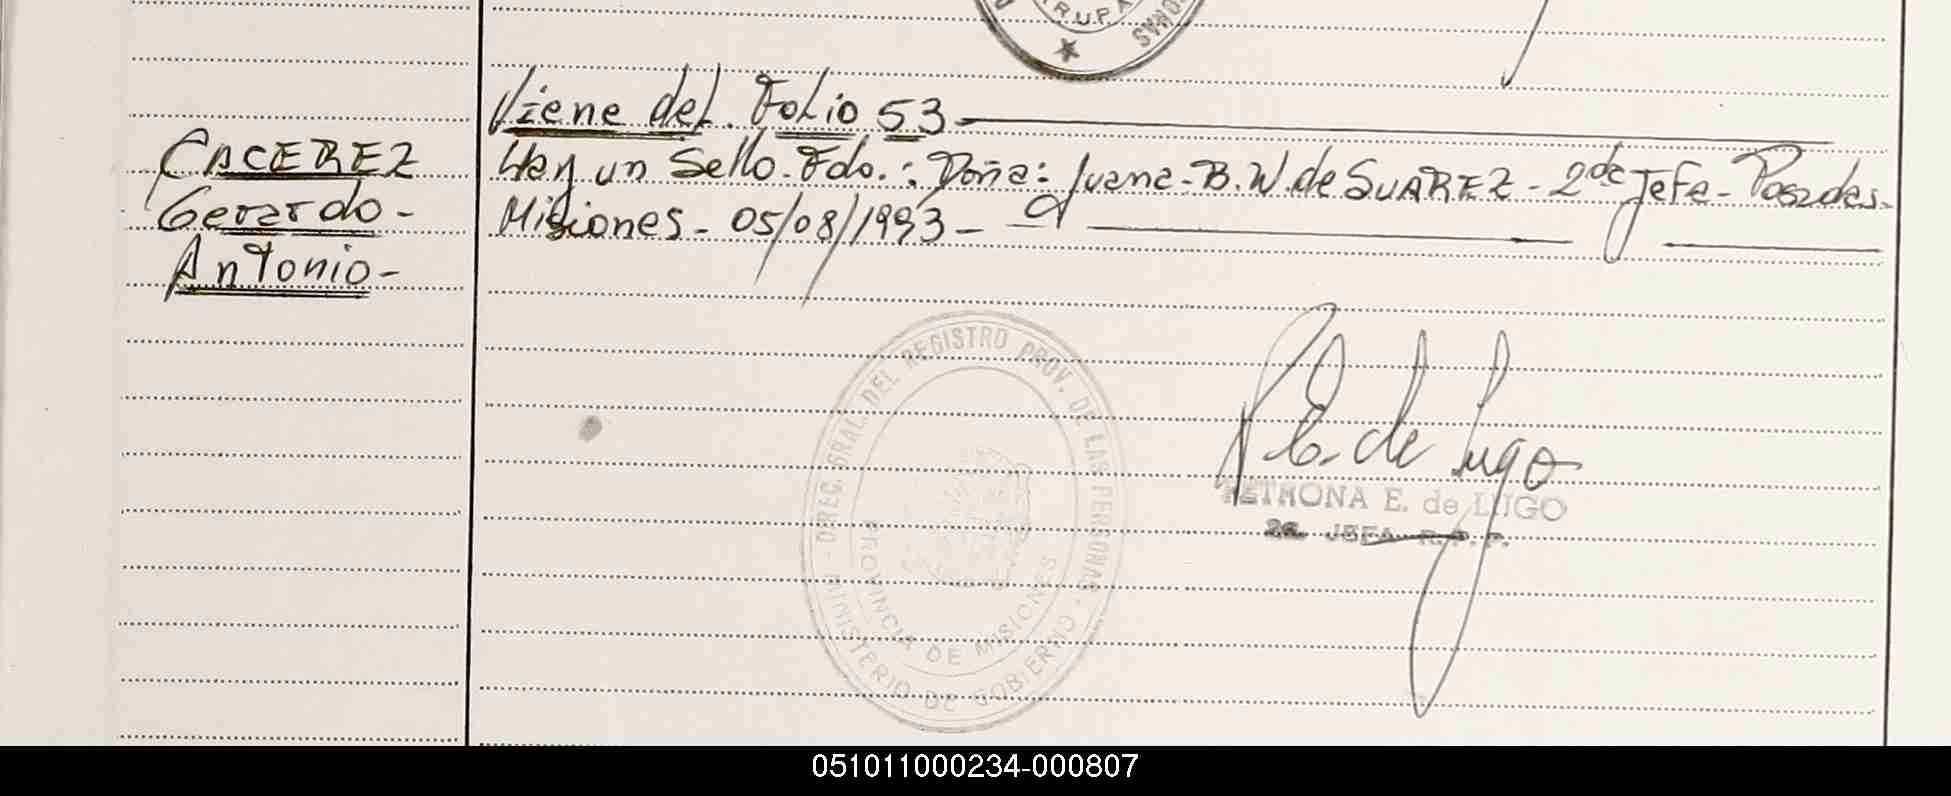 RUPA
Viene del Folio 53
CACEREZ
Gerardo-
Antonio-
Hay un Sello. Fdo.: Doña: Juana-B.W. de SUAREZ - 2da Jefa- Posadas-
Misiones - 05/08/1993 -
DIREC. GRAL. DEL REGISTRO PROV. DE LAS PERSONAS -
MINISTERIO DE GOBIERNO
PROVINCIA DE MISIONES
P. E. de Lugo
PETRONA E. de LUGO
2a. JEFA R.P.P.
051011000234-000807